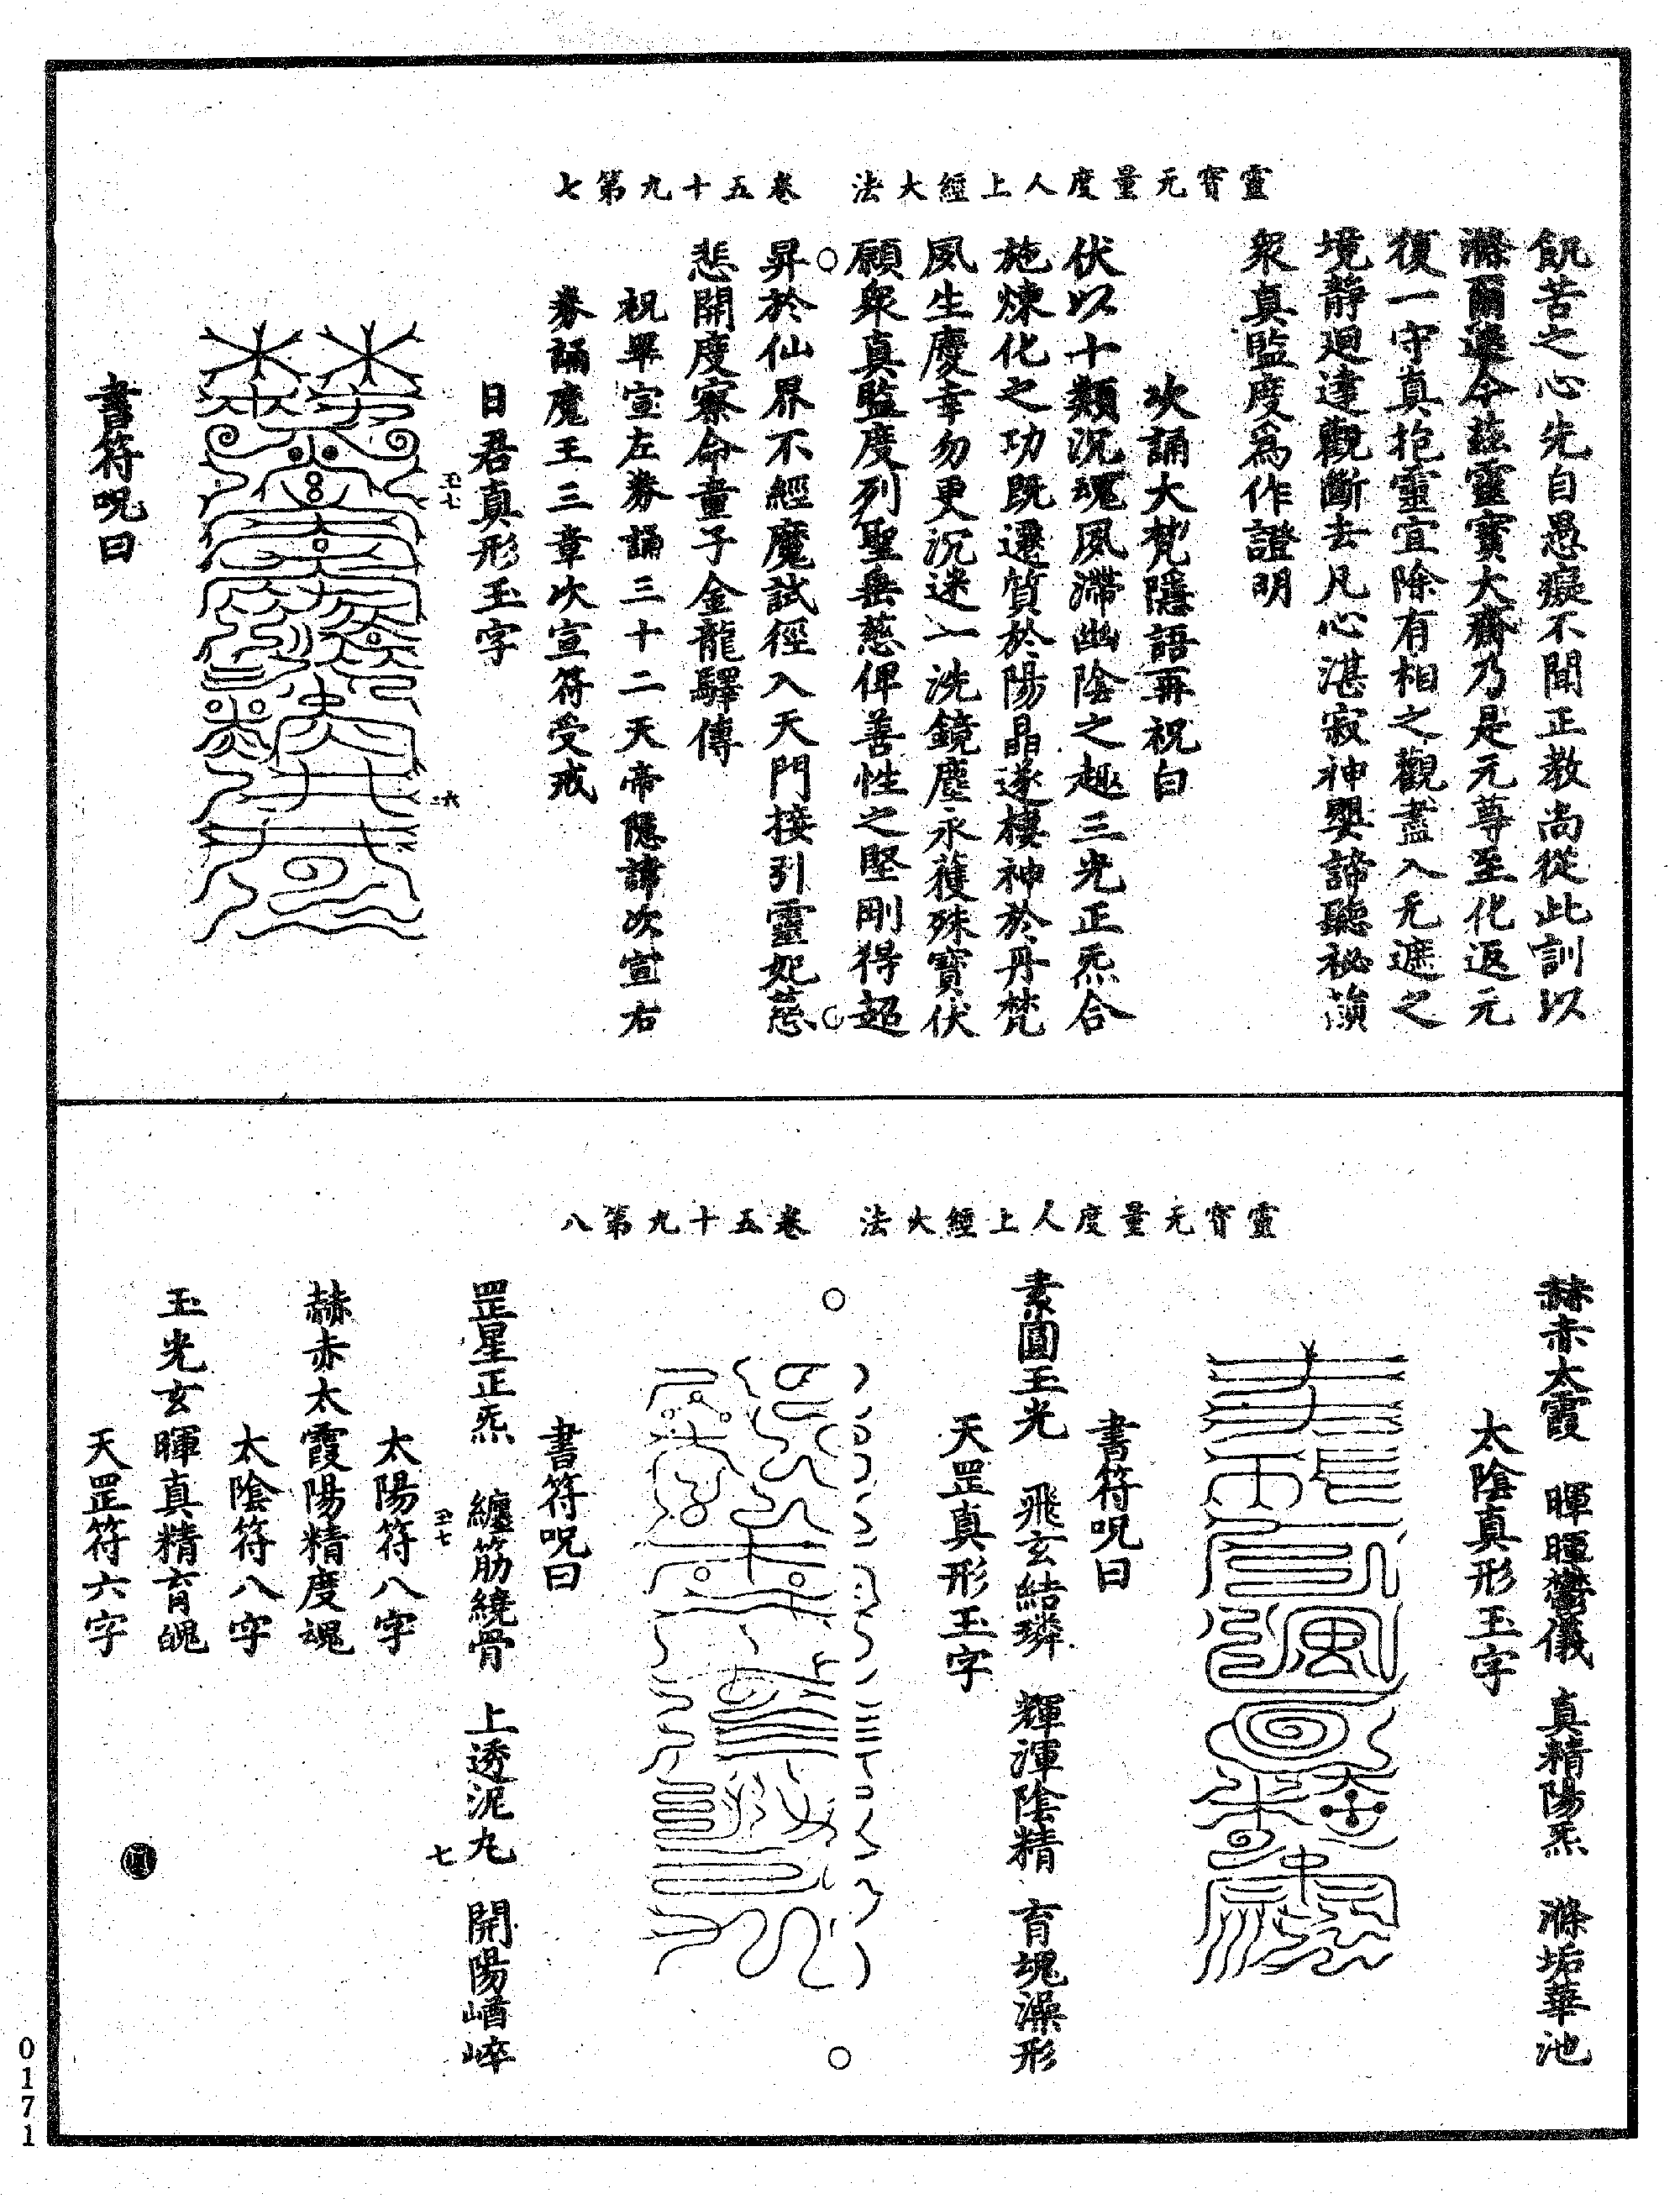 靈寶无量度人上經大法　卷五十九第七
飢苦之心先自愚癡不聞正教尚從此訓以
滌爾邀今兹靈寶大齋乃是元尊至化返元
復一守真抱靈宜除有相之觀盡入无遮之
境靜迴達觀斷去凡心湛寂神嬰諦聽祕韻
衆真監度爲作證明
次誦大梵隱語再祝白
伏以十類沉魂夙滯幽陰之趣三光正炁合
施煉化之功既遷質於陽晶遂棲神於丹梵
夙生慶幸勿更沉迷一洗鏡塵永獲殊寶伏
願衆真監度列聖垂慈俾善性之堅剛得超
昇於仙界不經魔試徑入天門接引靈妃慈
悲開度寮命童子金龍驛傳
祝畢宣左券誦三十二天帝隱諱次宣右
券誦魔王三章次宣符受戒
日君真形玉字
丑七
六
書符呪曰
靈寶无量度人上經大法　卷五十九第八
赫赤太霞　暉暉鬱儀　真精陽炁　滌垢華池
太陰真形玉字
書符呪曰
素圓玉光　飛玄結璘　輝渾陰精　育魂澡形
天罡真形玉字
書符呪曰
罡星正炁　纏筋繞骨　上透泥丸　開陽崷崪
丑七
七
太陽符八字
赫赤太霞陽精度魂
太陰符八字
玉光玄暉真精育魄
天罡符六字
0171